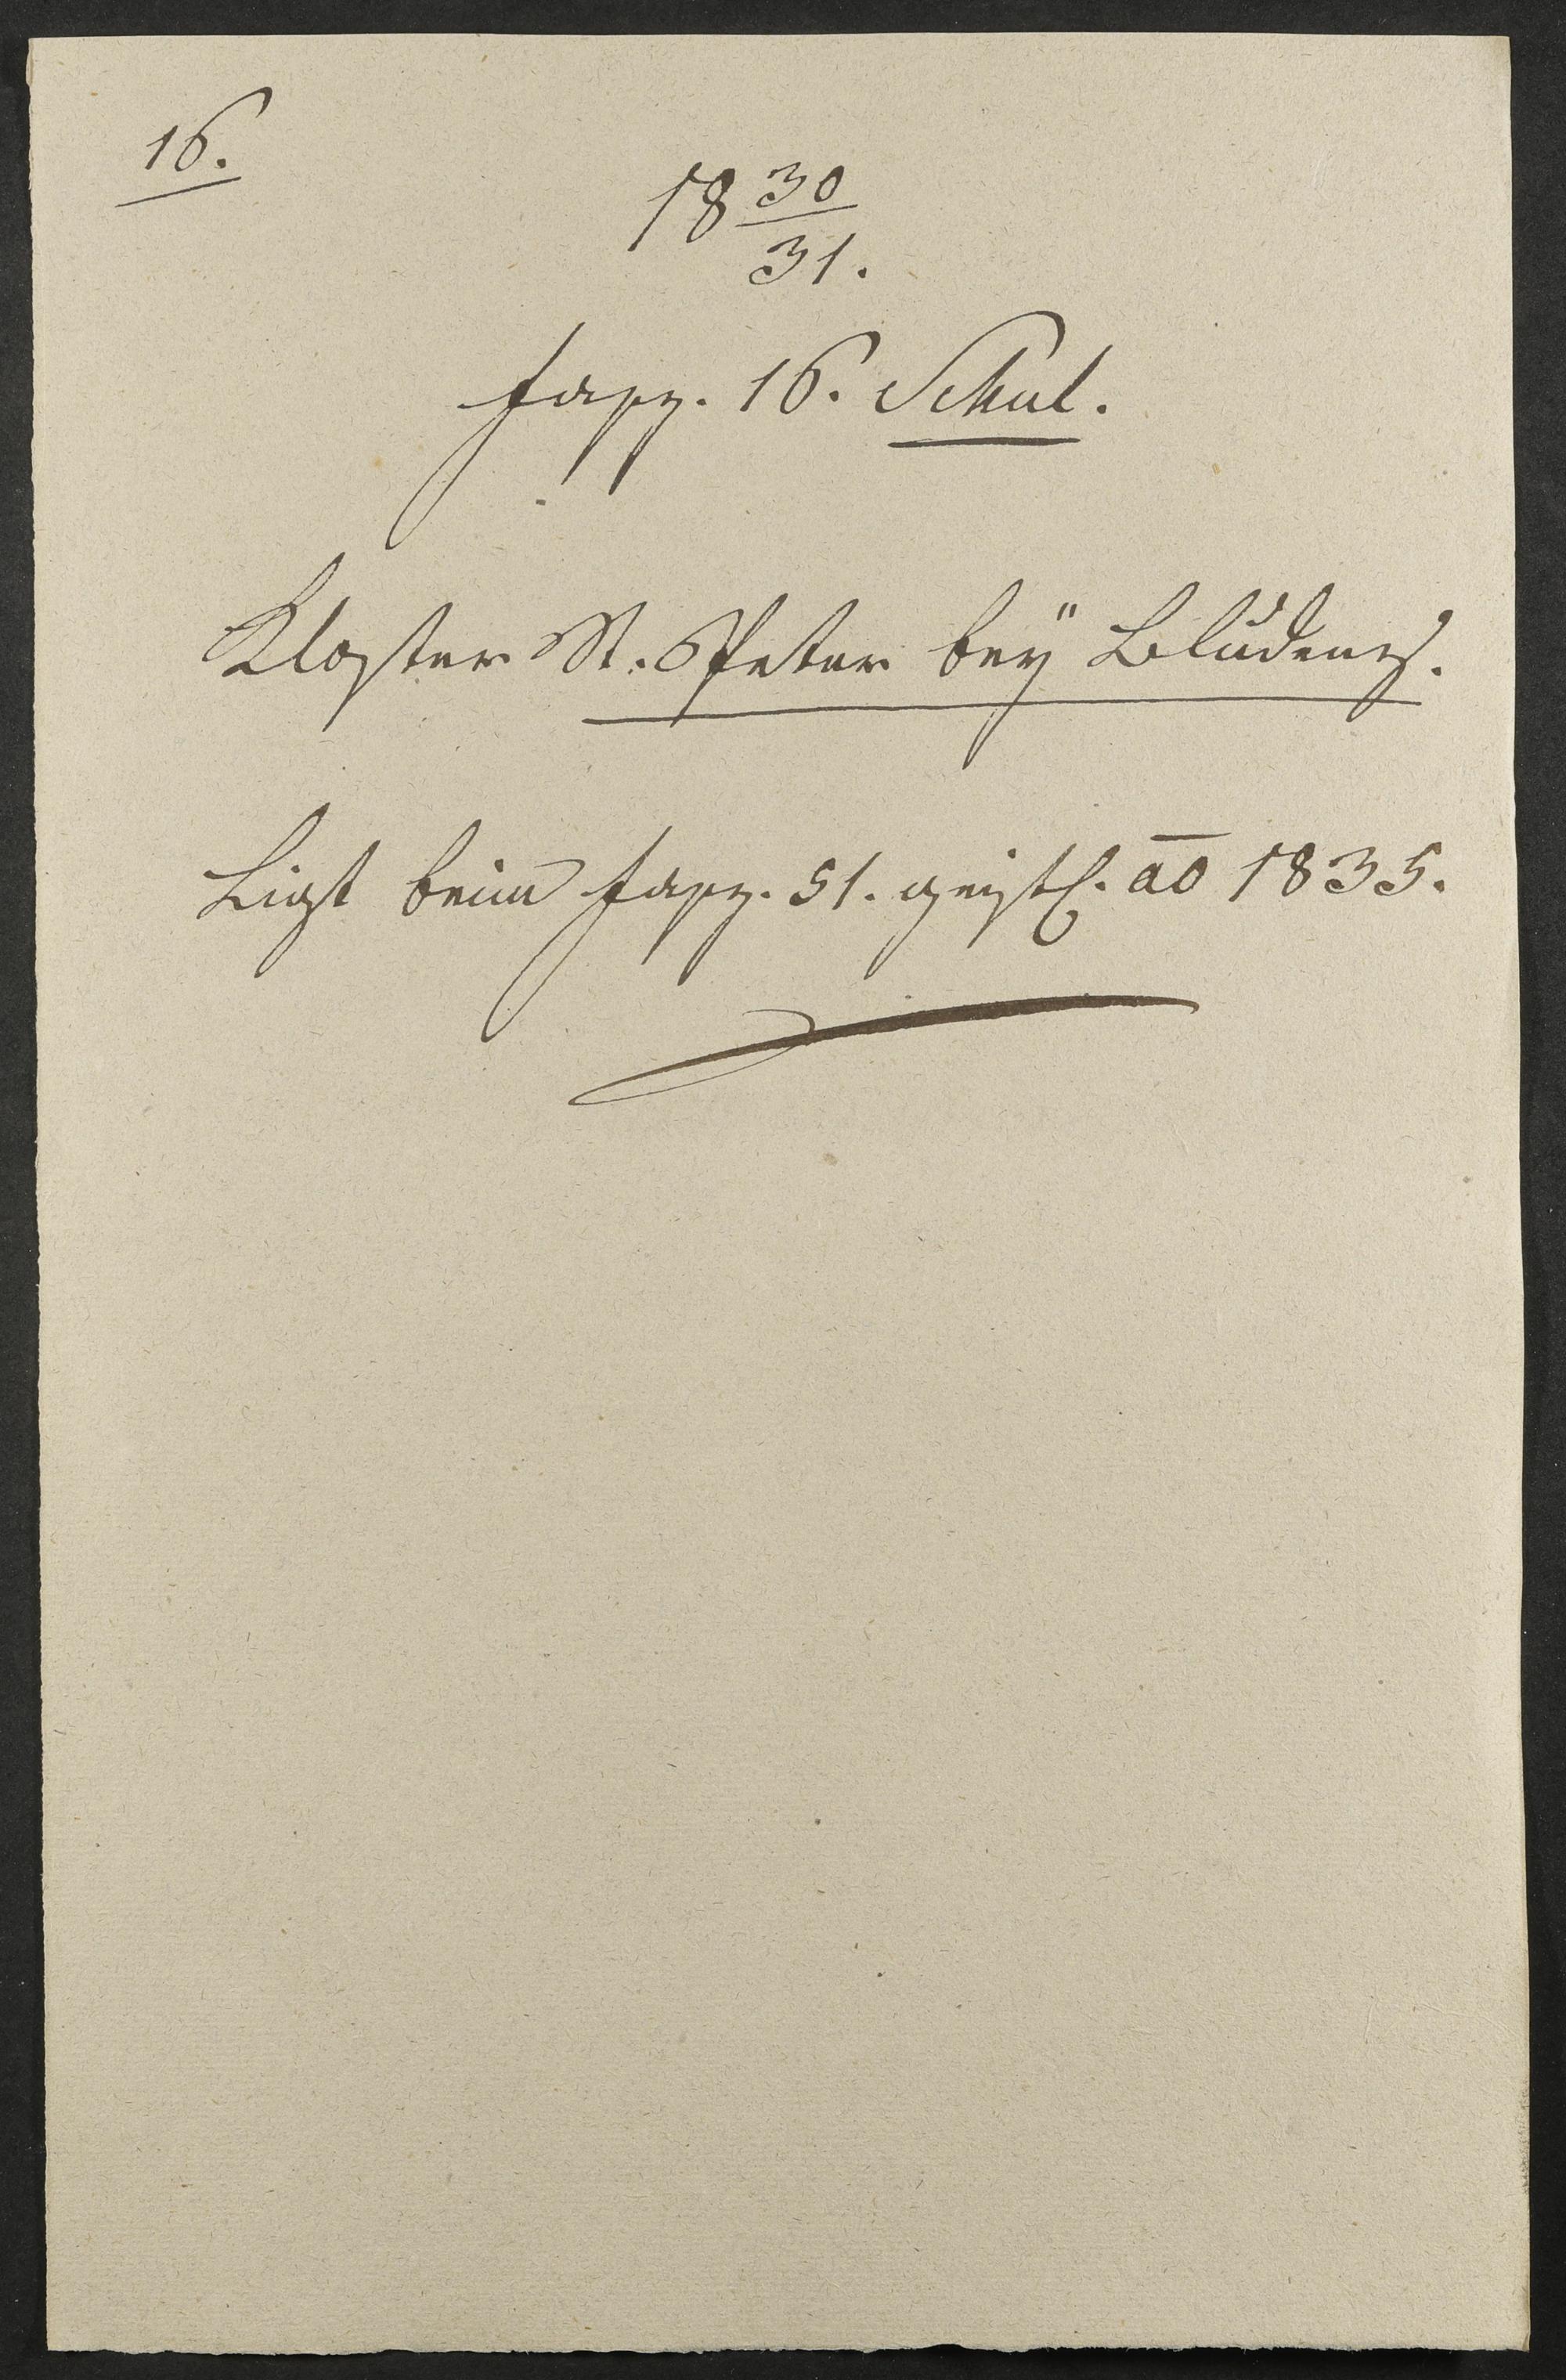 16.
18 30/31.
Fasz. 16. Schul.
Kloster St. Peter bey Bludenz.
Ligt beim Fasz. 51. geistl. ao 1835.